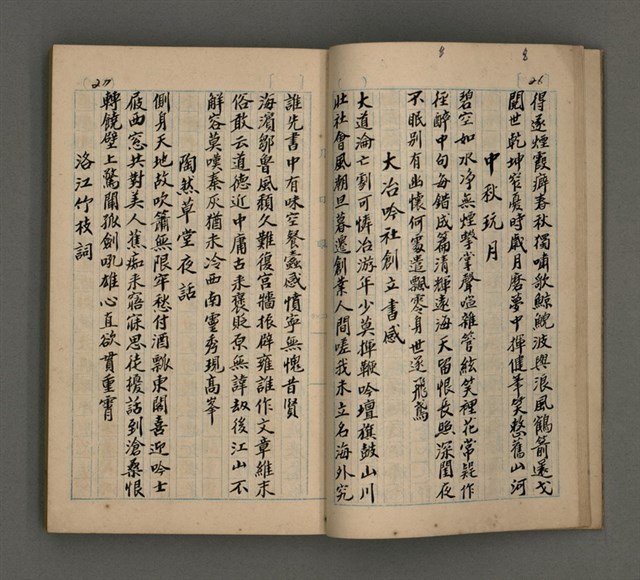 26
得遂煙霞癖春秋獨嘯歌鯨鯢波與浪風鶴箭還戈
閱世乾坤窄憂時歲月磨夢中揮健筆笑整舊山河
中秋玩月
碧空如水淨無煙擊掌聲喧雜管絃笑裡花常疑作
醉中句每錯成篇清輝遠海天留恨長照深閨夜
不眠別有幽懷何處遣飄零身世逐飛鳶
大冶吟社創立書感
大道淪亡劇可憐冶游年少莫揮鞭吟壇旗鼓山川
壯社會風潮旦暮遷創業人間嗟我未立名海外究
27
誰先書中有味空餐蠹感憤寧無愧昔賢
海濱鄒魯風頹久難復宮牆振辟雍誰作文章維末
俗敢云道德近中庸古來褒貶原無諱劫後江山不
解容莫嘆秦灰猶未冷西南靈秀現高峯
陶然草堂夜話
側身天地故吹簫無限牢愁付酒瓢東閣喜迎吟士
屐西窓共對美人蕉痴未寤寐思徒擾話到滄桑恨
轉饒壁上驚聞孤劍吼雄心直欲貫重霄
洛江竹枝詞